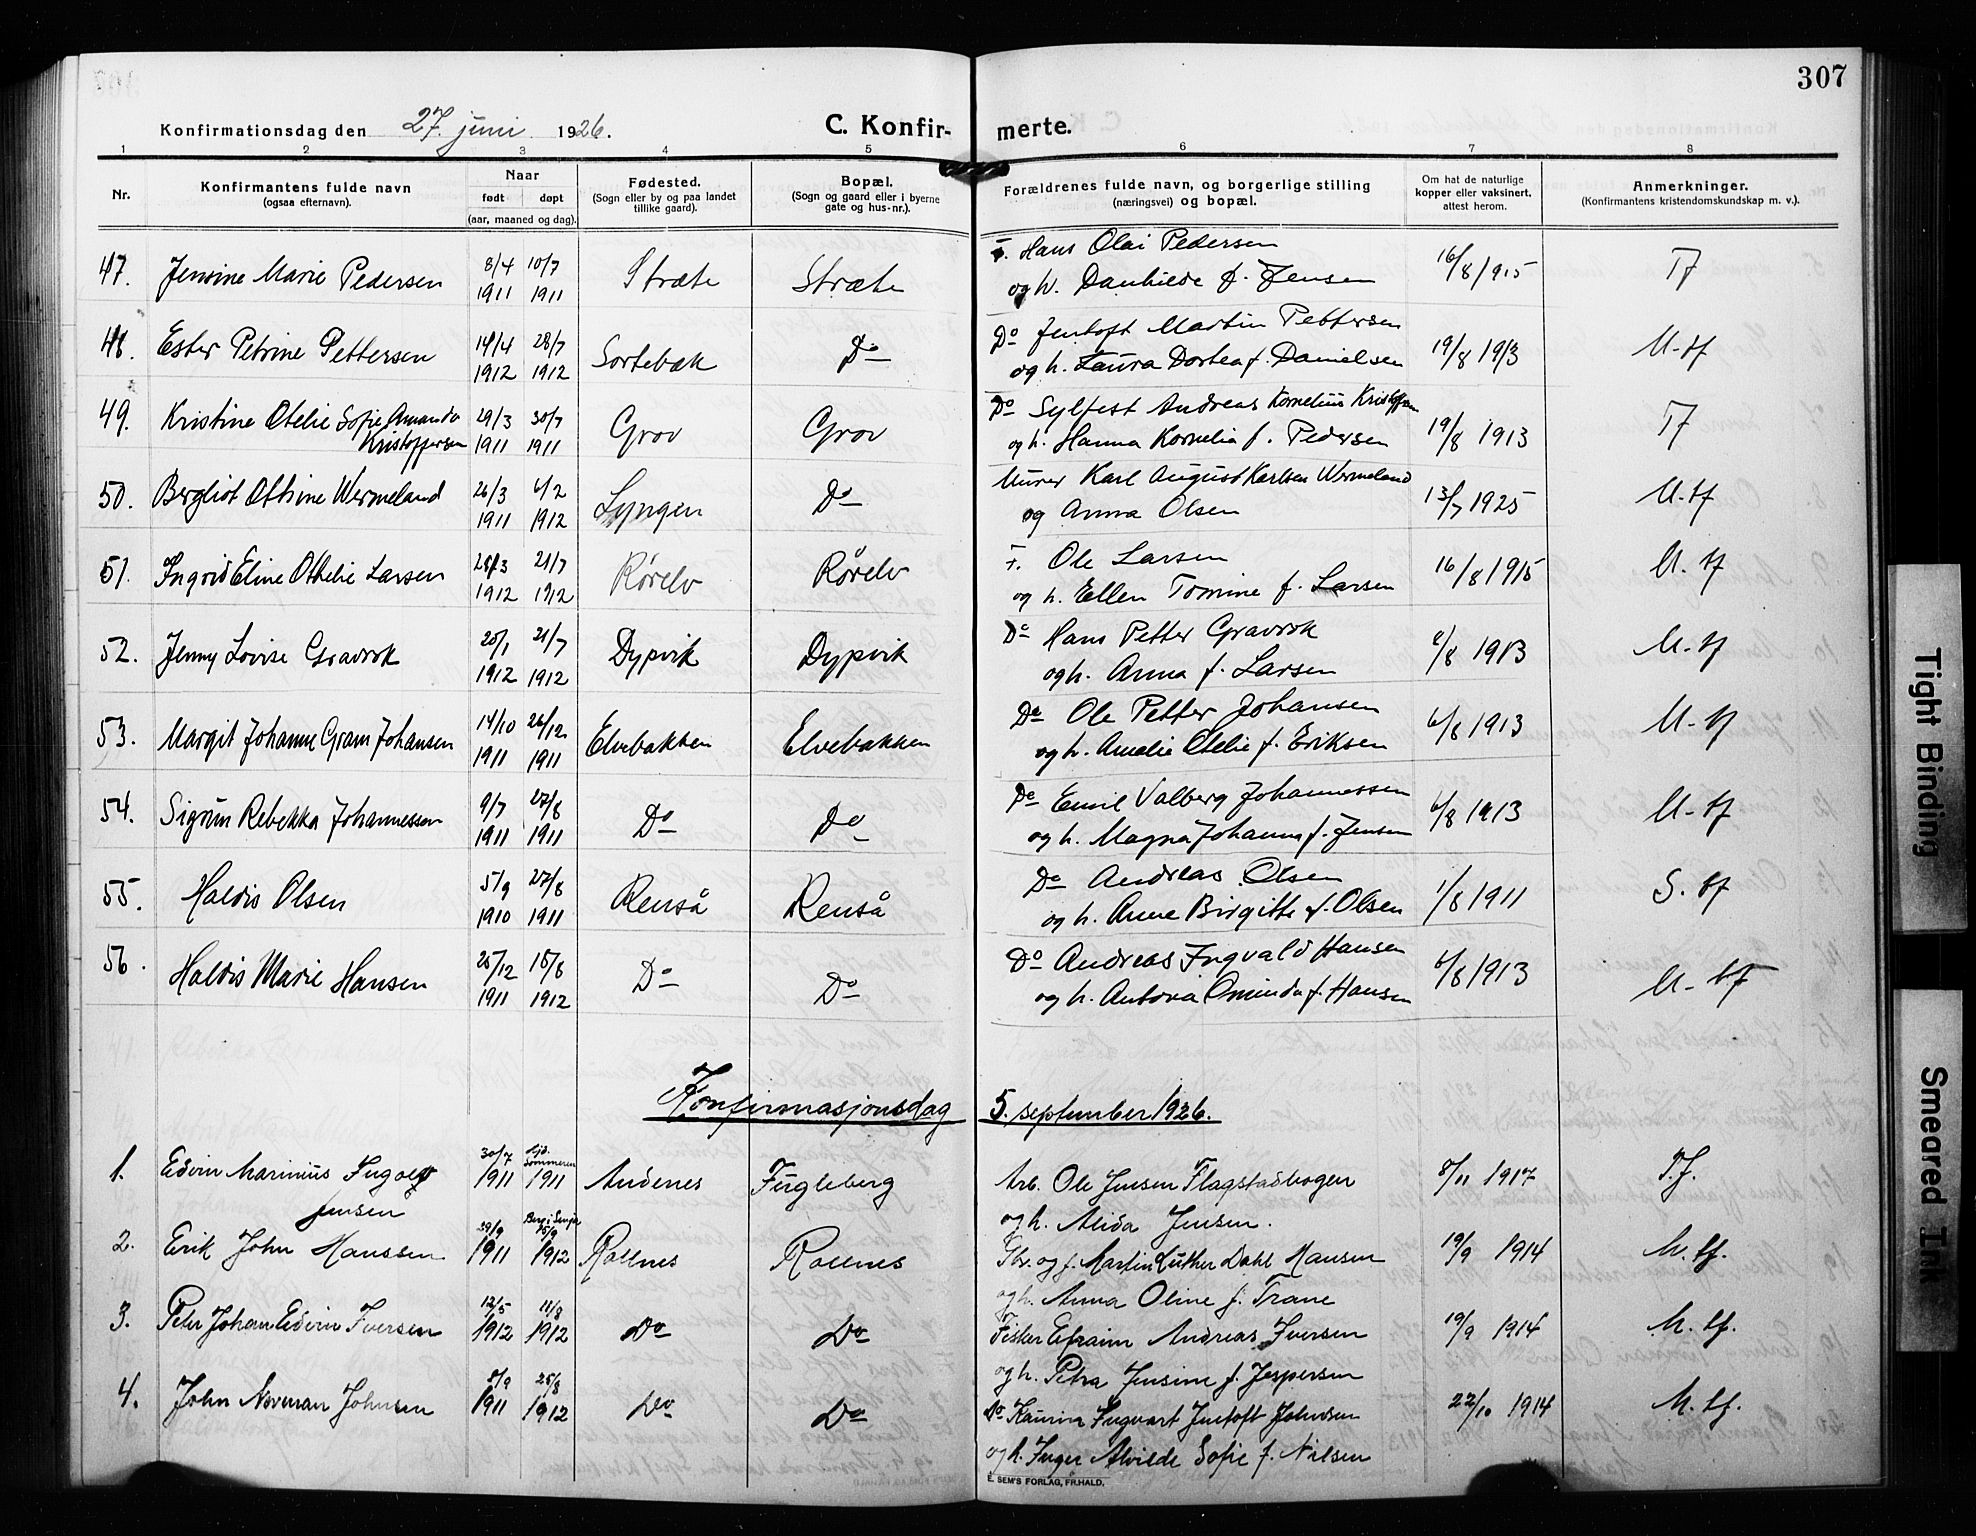 307
Konfirmationsdag den 27. juni 1926.
C. Konfirmerte.
1 2 3 4 5 6 7 8
Nr.
Konfirmantens fulde navn
(ogsaa efternavn).
Naar
født døpt
(aar, maaned og dag).
Fødested.
(Sogn eller by og paa landet
tillike gaard).
Bopæl.
(Sogn og gaard eller i byerne
gate og hus-nr.).
Forældrenes fulde navn, og borgerlige stilling
(næringsvei) og bopæl.
Om hat de naturlige
kopper eller vaksinert,
attest herom.
Anmerkninger.
(Konfirmantens kristendomskundskap m. v.).
47. Jensine Marie Pedersen 8/4 1911 10/7 1911 Stræte Stræte F. Hans Olai Pedersen 16/8 1915 Tf
og h. Danhilde f. Jensen
48. Ester Petrine Pettersen 14/4 1912 28/7 1912 Sortebæk Do Do Jentoft Martin Pettersen 19/8 1913 M-tf
og h. Laura Dortea f. Danielsen
49. Kristine Otelie Sofie Amanda 29/3 1911 30/7 1911 Grov Grov Do Sylfest Andreas Kornelius Kristoffersen 19/8 1913 Tf
Kristoffersen og h. Hanna Kornelia f. Pedersen
50. Bergliot Othine Wermeland 26/3 1911 6/2 1912 Lyngen Do Murer Karl August Karlsen Wermeland 13/7 1925 M-tf
og Anna Olsen
51. Ingrid Eline Othelie Larsen 28/3 1912 21/7 1912 Rørelv Rørelv F. Ole Larsen 16/8 1915 M. tf
og h. Ellen Tomine f. Larsen
52. Jenny Lovise Gravrok 25/1 1912 21/7 1912 Dypvik Dypvik Do Hans Petter Gravrok 6/8 1913 M-tf
og h. Anna f. Larsen
53. Margit Johanne Gram Johansen 14/10 1911 26/12 1911 Elvebakken Elvebakken Do Ole Petter Johansen 6/8 1913 M-tf
og h. Amalie Otelie f. Eriksen
54. Sigrun Rebekka Johannessen 9/7 1911 27/8 1911 Do Do Do Emil Valberg Johannessen 6/8 1913 M-tf
og h. Magna Johanna f. Jensen
55. Haldis Olsen 5/9 1910 27/8 1911 Renså Renså Do Andreas Olsen 1/8 1911 S. tf
og h. Anne Birgitte f. Olsen
56. Haldis Marie Hansen 25/12 1911 18/8 1912 Do Do Do Andreas Ingvald Hansen 6/8 1913 M-tf
og h. Antona Ominda f. Hansen
Konfirmasjonsdag 5. september 1926.
1. Edvin Marinius Ingolf 30/7 1911 sommeren 1911 Andenes Fugleberg Arb. Ole Jensen Flagstadbogen 8/11 1917 T.f.
Jensen og h. Alida Jensen.
2. Erik John Hanssen 29/9 1911 Berg i Senja 15/9 1912 Rollnes Rollnes Gbr. og f. Martin Luther Dahl Hansen 19/9 1914 M. tf.
og h. Anna Oline f. Trane
3. Peter Johan Edvin Iversen 12/5 1912 11/8 1912 Do Do Fisker Efraim Andreas Iversen 19/9 1914 M. tf.
og h. Petra Jensine f. Jespersen
4. John Norman Johnsen 8/9 1911 25/8 1912 Do Do Do Ingvart Jentoft Johnsen 22/10 1914 M. tf.
og h. Inger Alvilde Sofie f. Nilsen
E. SEM'S FORLAG, FR.HALD.
Tight Binding
Smeared Ink